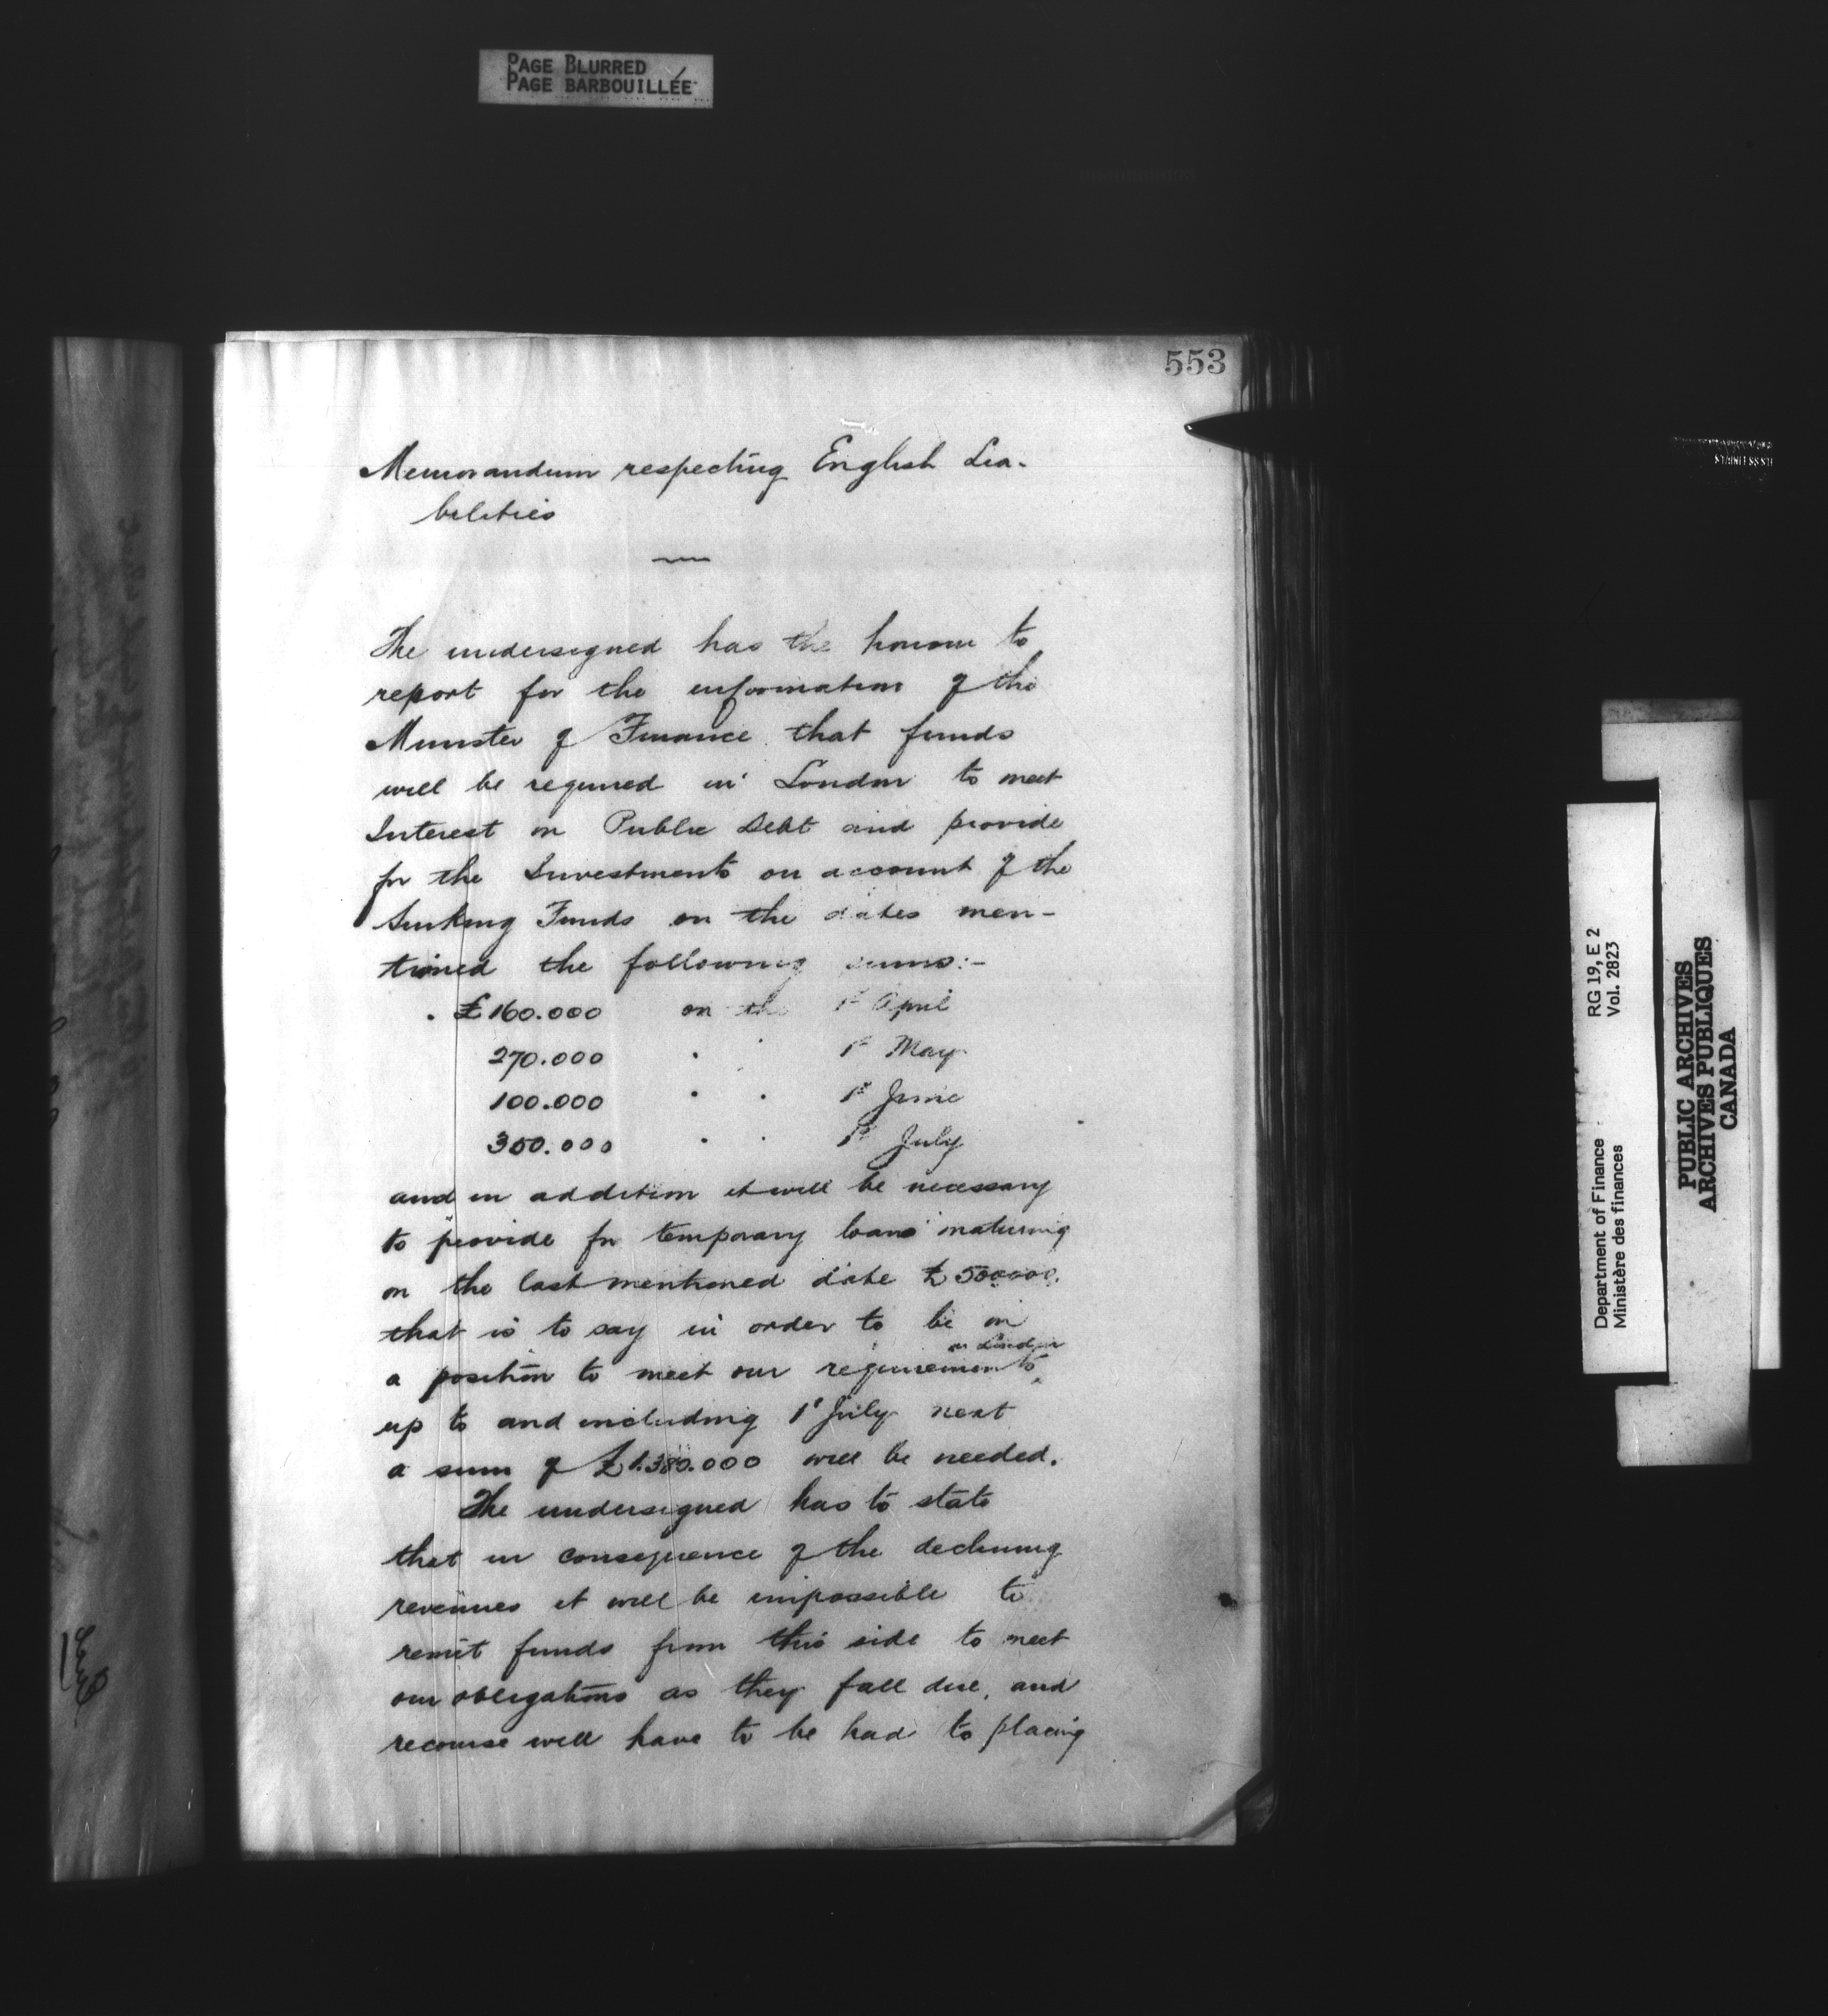 PAGE BLURRED
PAGE BARBOUILLÉE
553
Memorandum respecting English Lia-
bilities
The undersigned has the honour to
report for the information of the
Minister of Finance that funds
will be required in London to meet
Interest on Public Debt and provide
for the Investments on account of the
Sinking Funds on the dates men-
tioned the following sums:-
£160.000 on the 1st April
270.000 " " 1st May
100.000 " " 1st June
350.000 " " 1st July
and in addition it will be necessary
to provide for temporary loans maturing
on the last mentioned date £500000.
that is to say in order to be in
in London
a position to meet our requirements
up to and including 1st July next
a sum of £1.380.000 will be needed.
The undersigned has to state
that in consequence of the declining
revenues it will be impossible to
remit funds from this side to meet
our obligations as they fall due, and
recourse will have to be had to placing
Department of Finance RG 19, E 2
Ministère des finances Vol. 2823
PUBLIC ARCHIVES
ARCHIVES PUBLIQUES
CANADA